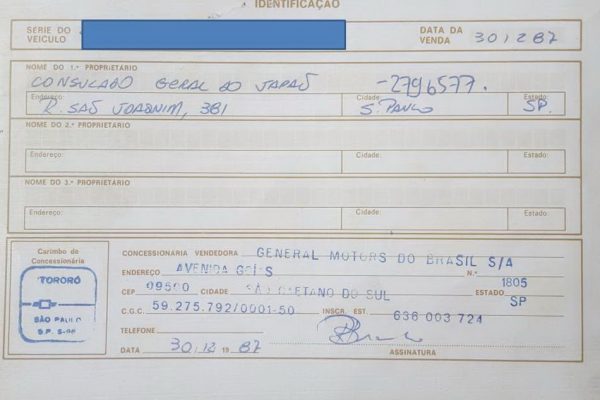 IDENTIFICAÇÃO
SERIE DO VEÍCULO DATA DA VENDA 30/2 87
NOME DO 1.º PROPRIETÁRIO
CONSULADO GERAL DO JAPAÕ -2796577.
Endereço: Cidade: Estado:
R. SAÕ JOAQNIM, 381 S. PAULO SP.
NOME DO 2.º PROPRIETÁRIO
Endereço: Cidade: Estado:
NOME DO 3.º PROPRIETÁRIO
Endereço: Cidade: Estado:
Carimbo de Concessionária
TORORÓ
SÃO PAULO
S.P.
CONCESSIONÁRIA VENDEDORA GENERAL MOTORS DO BRASIL S/A
ENDEREÇO AVENIDA GOIÁS N.º 1805
CEP 09500 CIDADE SÃO CAETANO DO SUL ESTADO SP
C.G.C. 59.275.792/0001-50 INSCR. EST. 636 003 724
TELEFONE
DATA 30/12 19 87 ASSINATURA